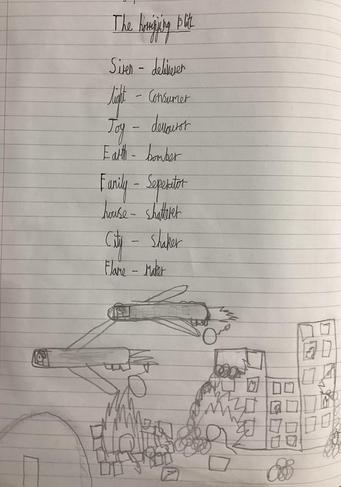 The horrifying blitz
Siren - deliverer
light - consumer
Joy - devouror
Earth - bomber
Family - Seperator
house - shatterer
City - Shaker
Flame - maker